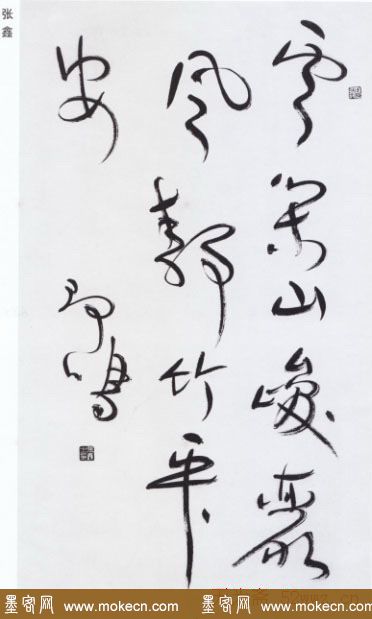 张鑫
雲閑山峻麗
風靜竹平
安
鳴
墨客网 www.mokecn.com 墨客网 www.mokecn.com